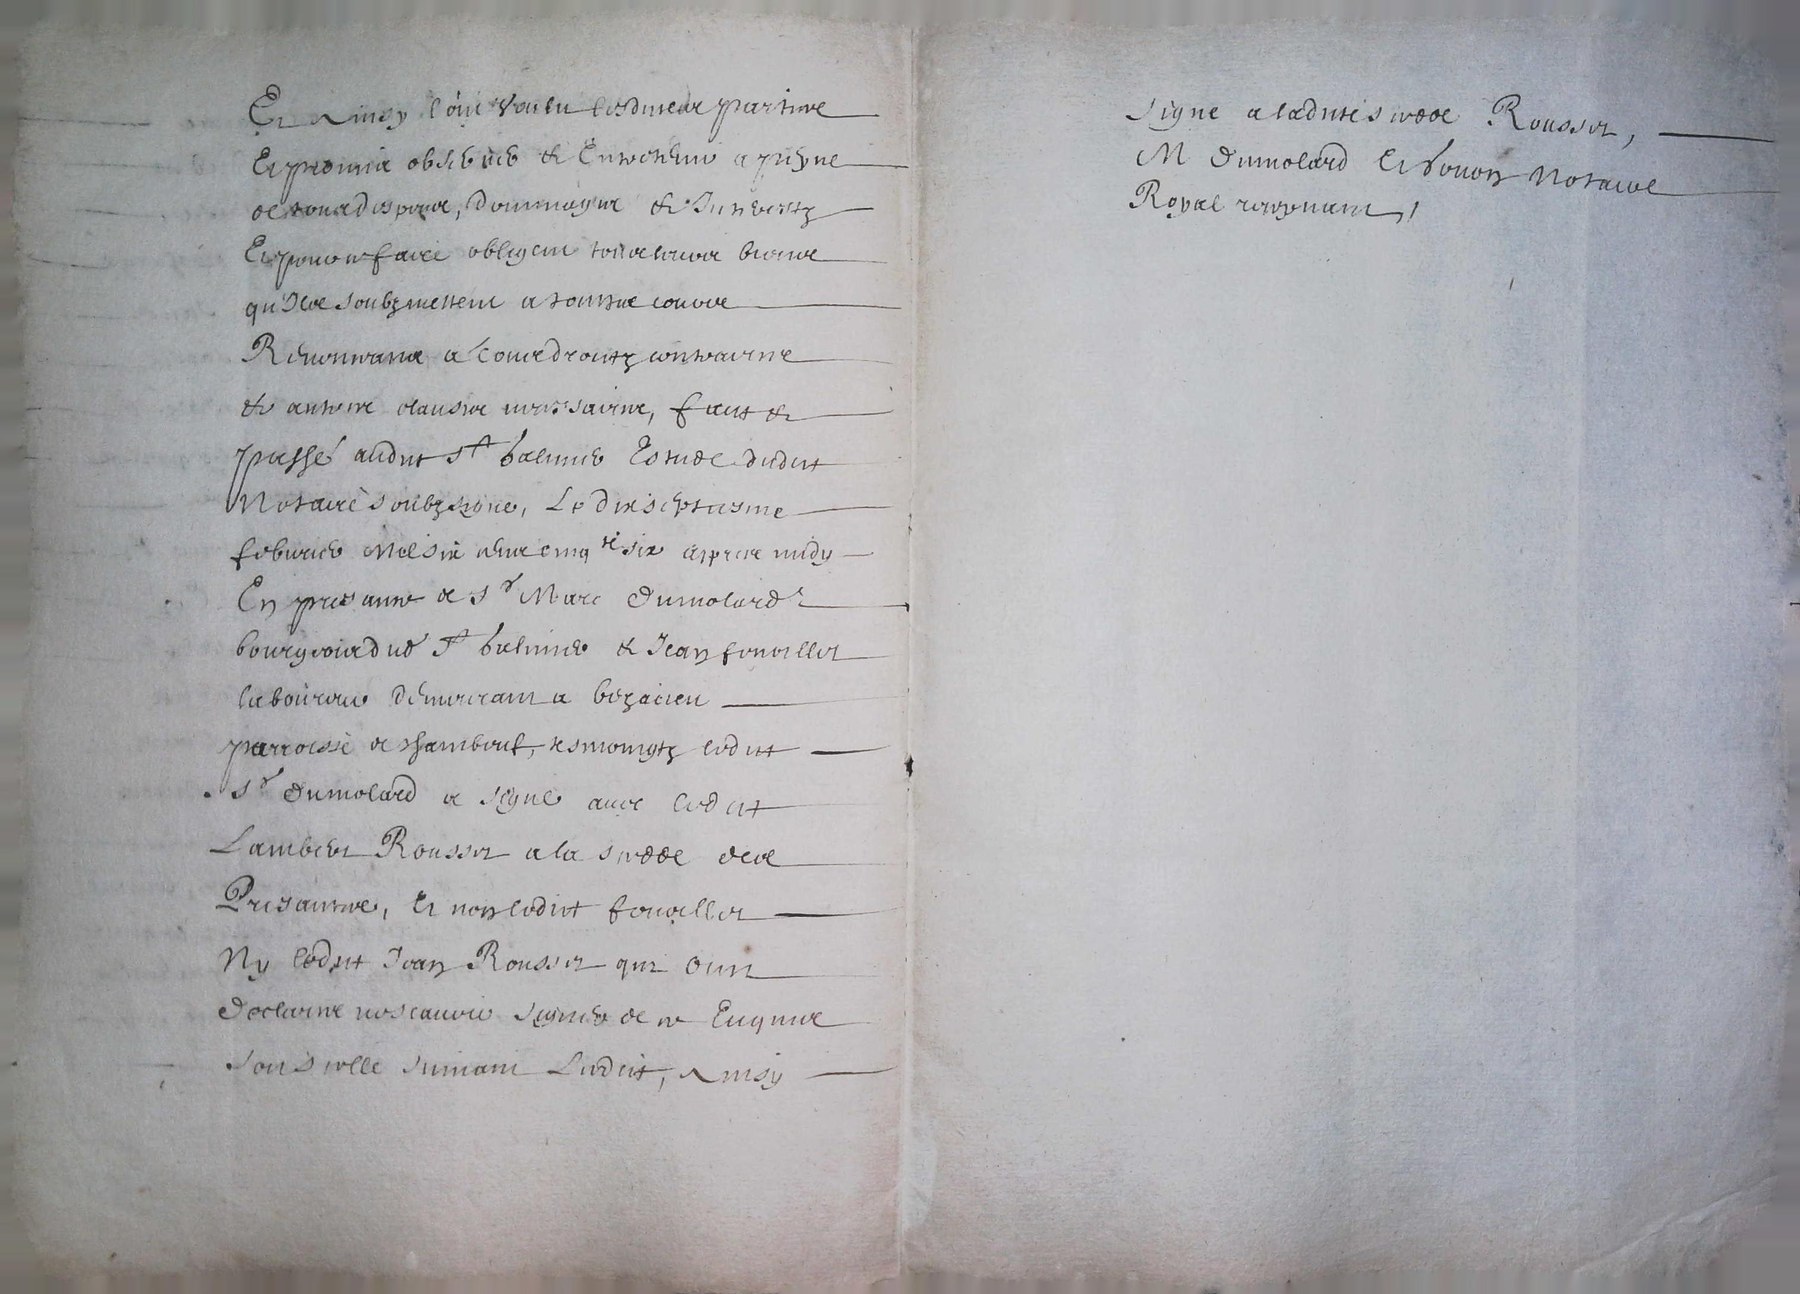 Et Ainsy l'ont Voulu lesdittes partyes
Et promis observer & Entretenir a peyne
de tous despens, dommages & Interestz
Et pour ce faire obligent tous leurs biens
qu'Ils soubzmettent a touttes cours
Renonceans a tous droitz contraires
& autres clauses necessaires, faict &
passé audit St Galmier Estude dudit
Notaire soubzsigné, Le dixseptiesme
febvrier Mil six cens cinqte six appres midy
En presance de Sr Marc Dumolard
bourgeois dud St Galmier & Jean fenoillet
laboureur demeurant a
parroisse de Chambeuf, tesmoingtz ledit
Sr Dumolard a signé avec ledit
Lambert Rousset a la scedde des
Presantes, Et non ledit fenoillet
Ny ledit Jean Rousset qui ont
declaré ne scavoir signer de ce Enquis
Ainsy
Signé a laditte scedde Rousset,
M Dumolard Et Notaire
Royal